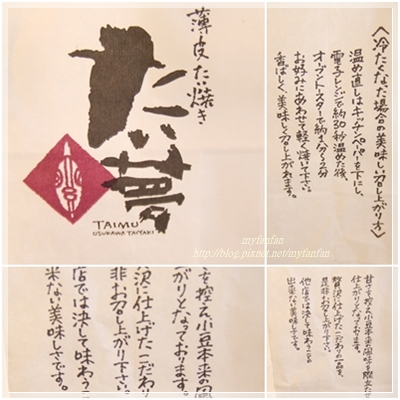 薄皮たい焼き
たい夢
TAIMU
USUKAWA TAIYAKI
〈冷たくなった場合の美味しい召し上がり方〉
温め直しはキッチンペーパーを下にし、
電子レンジで約30秒温めた後、
オーブントースターで約1分〜2分
お好みにあわせて軽く焼いて下さい。
香ばしく、美味しく召し上がれます。
myfanfan
http://blog.pixnet.net/myfanfan
さを控え小豆本来の風
がりとなっております。
沢に仕上げたこだわり
非お召し上がり下さい。
店では決して味わう
米ない美味しさです。
甘さを控え小豆本来の風味を際立たせ
仕上がりとなっております。
贅沢に仕上げたこだわりの一品を、
是非お召し上がり下さい。
他店では決して味わう
出来ない美味しさです。